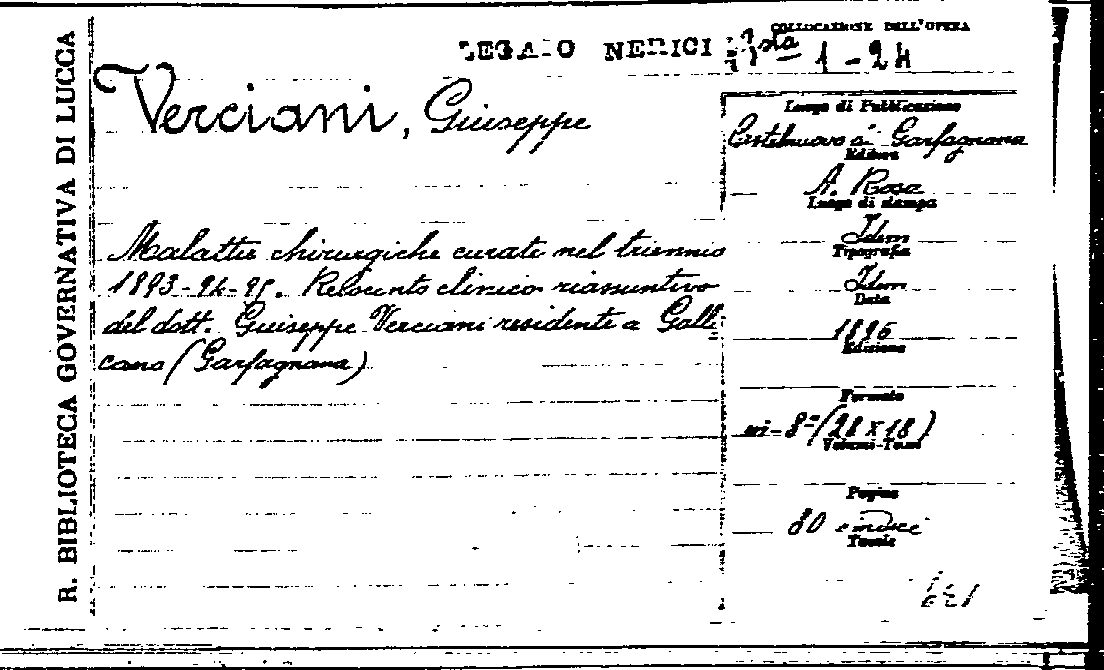 R. BIBLIOTECA GOVERNATIVA DI LUCCA
COLLOCAZIONE DELL'OPERA
LEGATO NERICI
1-24
Verciani, Giuseppe
Malattie chirurgiche curate nel triennio
1893-94-95. Resoconto clinico riassuntivo
del dott. Giuseppe Verciani residente a Galli
cano (Garfagnana)
Luogo di Pubblicazione
Castelnuovo di Garfagnana
Editore
A. Rosa
Luogo di stampa
Idem
Tipografia
Idem
Data
1896
Edizione
Formato
in-8º (28 x 18)
Volumi-Tomi
Pagine
80 e indici
Tavole